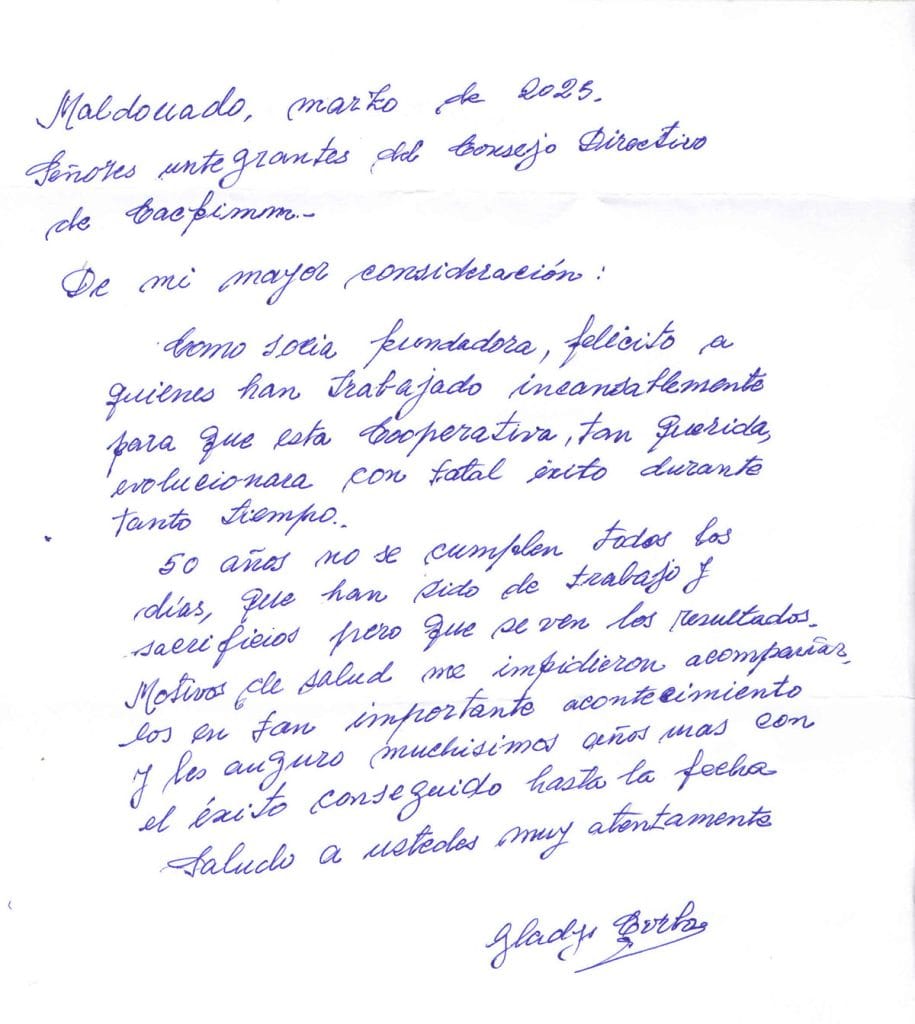 Maldonado, marzo de 2025.
Señores integrantes del Consejo Directivo
de Cacpimm.-
De mi mayor consideración:
Como socia fundadora, felicito a
quienes han trabajado incansablemente
para que esta Cooperativa, tan querida,
evolucionara con total éxito durante
tanto tiempo..
50 años no se cumplen todos los
días, que han sido de trabajo y
sacrificios pero que se ven los resultados.
Motivos de salud me impidieron acompañar
los en tan importante acontecimiento
y les auguro muchísimos años mas con
el éxito conseguido hasta la fecha
Saludo a ustedes muy atentamente
Gladys